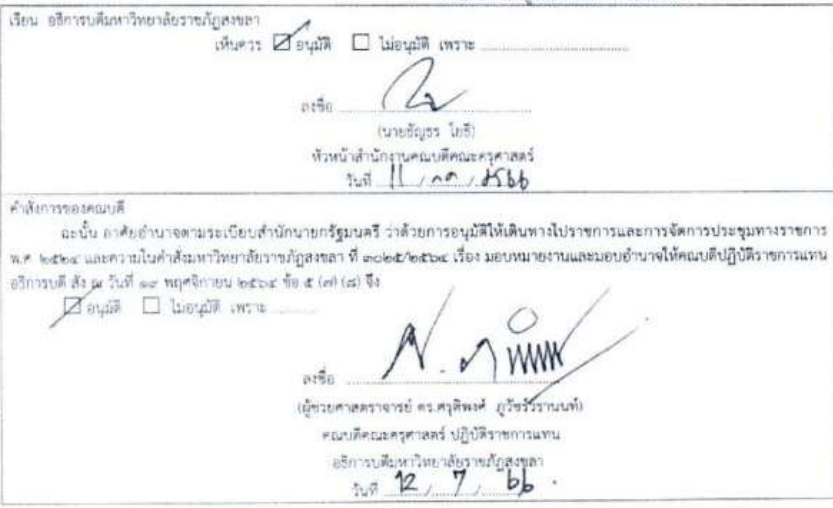 เรียน อธิการบดีมหาวิทยาลัยราชภัฏสงขลา
เห็นควร ☑ อนุมัติ ☐ ไม่อนุมัติ เพราะ ..............................
ลงชื่อ
(นายธัญธร โยธี)
หัวหน้าสำนักงานคณบดีคณะครุศาสตร์
วันที่ 11 / กค / 2566
คำสั่งการของคณบดี
ฉะนั้น อาศัยอำนาจตามระเบียบสำนักนายกรัฐมนตรี ว่าด้วยการอนุมัติให้เดินทางไปราชการและการจัดการประชุมทางราชการ
พ.ศ. ๒๕๒๔ และความในคำสั่งมหาวิทยาลัยราชภัฏสงขลา ที่ ๓๐๒๕/๒๕๖๔ เรื่อง มอบหมายงานและมอบอำนาจให้คณบดีปฏิบัติราชการแทน
อธิการบดี สั่ง ณ วันที่ ๑๙ พฤศจิกายน ๒๕๖๔ ข้อ ๕ (๗) (๘) จึง
☑ อนุมัติ ☐ ไม่อนุมัติ เพราะ ..........
ลงชื่อ
(ผู้ช่วยศาสตราจารย์ ดร.ศรุติพงศ์ ภูวัชร์วรานนท์)
คณบดีคณะครุศาสตร์ ปฏิบัติราชการแทน
อธิการบดีมหาวิทยาลัยราชภัฏสงขลา
วันที่ 12 / 7 / 66 .